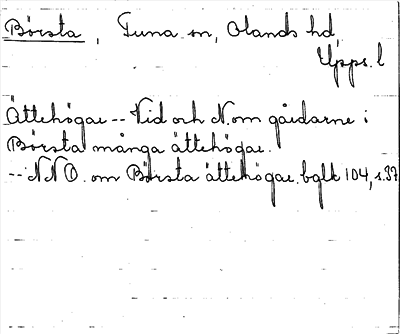 Börsta, Tuna sn, Olands hd,
Upps. l
Ättehögar -- Vid och N. om gårdarne i
Börsta många ättehögar.
-- NNO. om Börsta ättehögar. bglk 104, s. 37